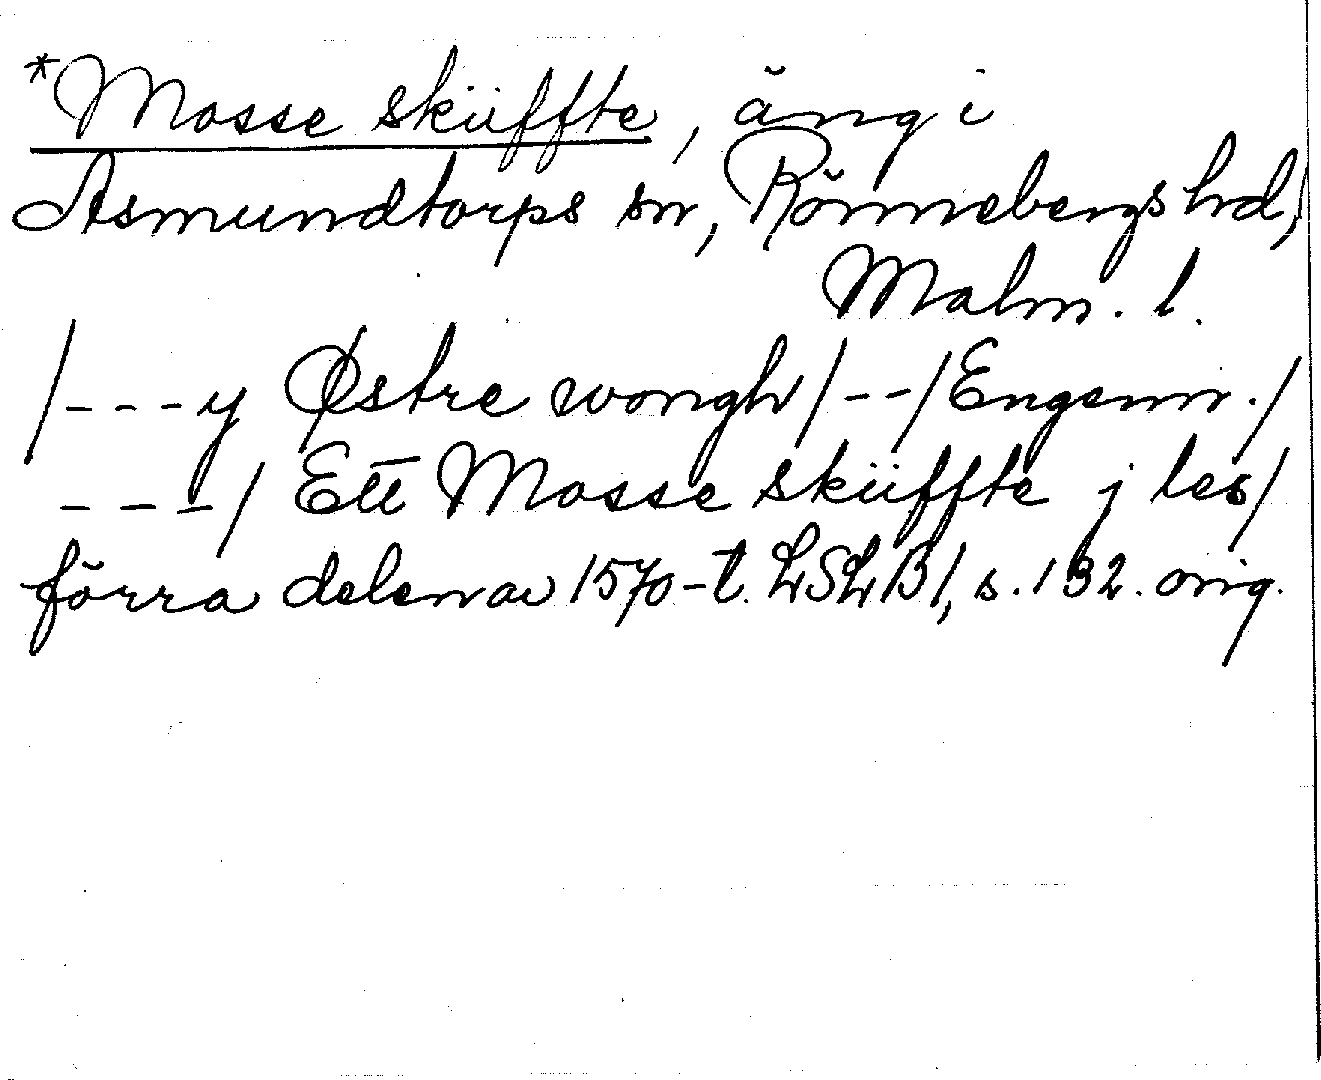 *Mosse sküffte, äng i
Asmundtorps sn, Rönnebergs hrd,
Malm. l.
/---y Østre wongh/--/Engenn./
---/ Ett Mosse sküffte j les/
förra delen av 1570-t. LSLB1, s. 132. orig.